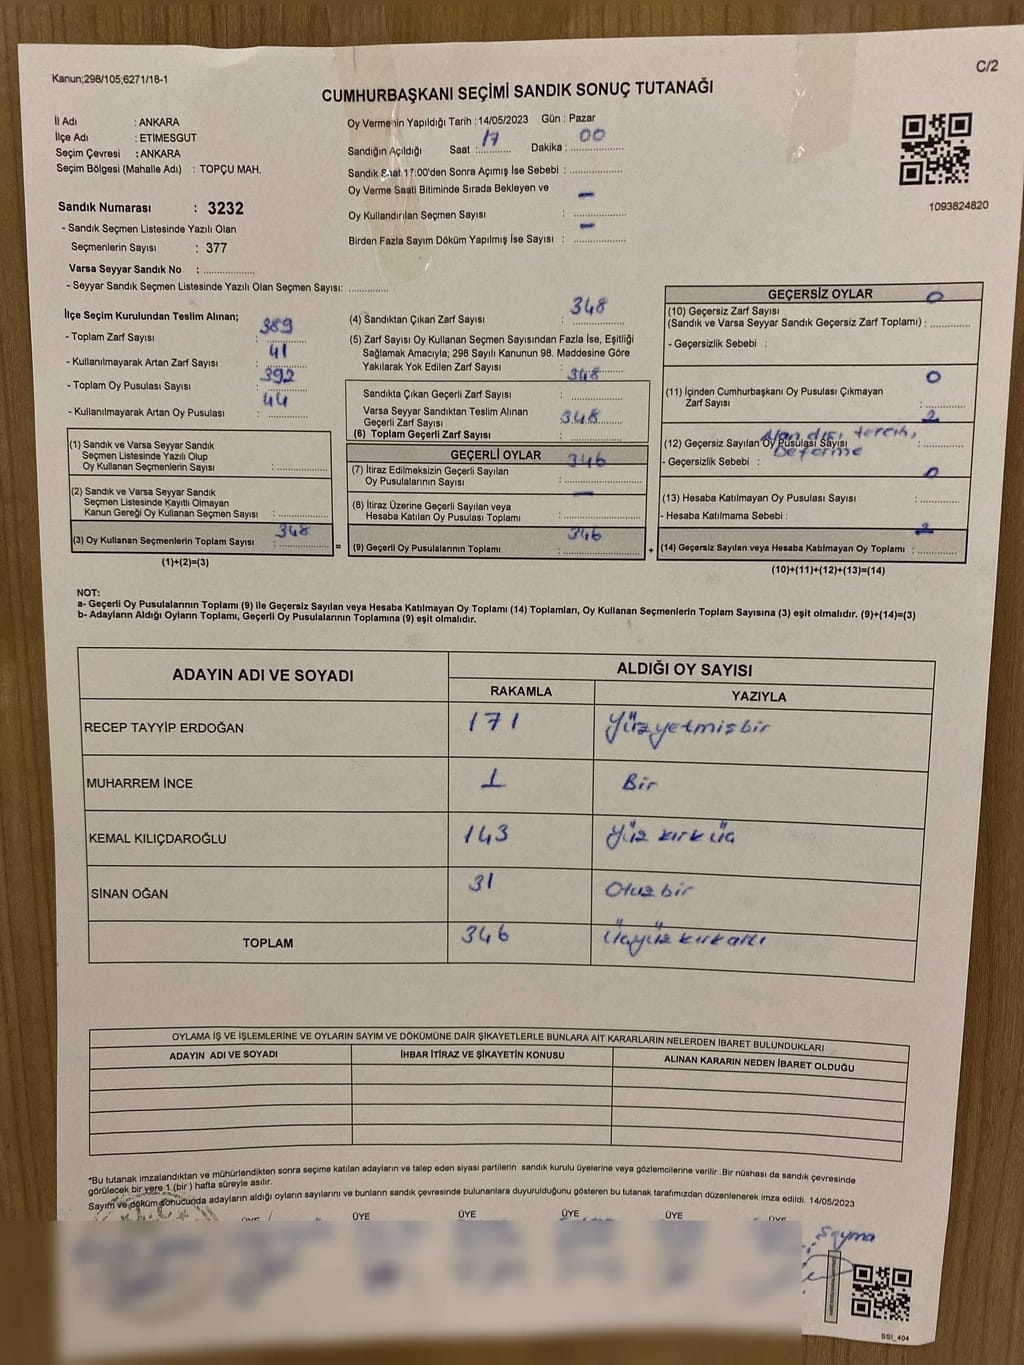 Kanun;298/105;6271/18-1
C/2
CUMHURBAŞKANI SEÇİMİ SANDIK SONUÇ TUTANAĞI
İl Adı : ANKARA
İlçe Adı : ETİMESGUT
Seçim Çevresi : ANKARA
Seçim Bölgesi (Mahalle Adı) : TOPÇU MAH.
Oy Vermenin Yapıldığı Tarih : 14/05/2023 Gün : Pazar
Sandığın Açıldığı Saat : 17 Dakika : 00
Sandık Saat 17:00'den Sonra Açımış İse Sebebi :
Oy Verme Saati Bitiminde Sırada Bekleyen ve
Oy Kullandırılan Seçmen Sayısı : —
Birden Fazla Sayım Döküm Yapılmış İse Sayısı : —
1093824820
Sandık Numarası : 3232
- Sandık Seçmen Listesinde Yazılı Olan
Seçmenlerin Sayısı : 377
Varsa Seyyar Sandık No :
- Seyyar Sandık Seçmen Listesinde Yazılı Olan Seçmen Sayısı:
İlçe Seçim Kurulundan Teslim Alınan;
- Toplam Zarf Sayısı : 389
- Kullanılmayarak Artan Zarf Sayısı : 41
- Toplam Oy Pusulası Sayısı : 392
- Kullanılmayarak Artan Oy Pusulası : 44
(1) Sandık ve Varsa Seyyar Sandık
Seçmen Listesinde Yazılı Olup
Oy Kullanan Seçmenlerin Sayısı :
(2) Sandık ve Varsa Seyyar Sandık
Seçmen Listesinde Kayıtlı Olmayan
Kanun Gereği Oy Kullanan Seçmen Sayısı :
(3) Oy Kullanan Seçmenlerin Toplam Sayısı : 348
(1)+(2)=(3)
(4) Sandıktan Çıkan Zarf Sayısı : 348
(5) Zarf Sayısı Oy Kullanan Seçmen Sayısından Fazla İse, Eşitliği
Sağlamak Amacıyla; 298 Sayılı Kanunun 98. Maddesine Göre
Yakılarak Yok Edilen Zarf Sayısı :
Sandıkta Çıkan Geçerli Zarf Sayısı : 348
Varsa Seyyar Sandıktan Teslim Alınan
Geçerli Zarf Sayısı :
(6) Toplam Geçerli Zarf Sayısı : 348
=
GEÇERLİ OYLAR
(7) İtiraz Edilmeksizin Geçerli Sayılan
Oy Pusulalarının Sayısı : 346
(8) İtiraz Üzerine Geçerli Sayılan veya
Hesaba Katılan Oy Pusulası Toplamı : —
(9) Geçerli Oy Pusulalarının Toplamı : 346
+
GEÇERSİZ OYLAR
(10) Geçersiz Zarf Sayısı
(Sandık ve Varsa Seyyar Sandık Geçersiz Zarf Toplamı) : 0
- Geçersizlik Sebebi :
(11) İçinden Cumhurbaşkanı Oy Pusulası Çıkmayan
Zarf Sayısı : 0
(12) Geçersiz Sayılan Oy Pusulası Sayısı : 2
- Geçersizlik Sebebi : Alan dışı tercih,
Deforme
(13) Hesaba Katılmayan Oy Pusulası Sayısı : 0
- Hesaba Katılmama Sebebi :
(14) Geçersiz Sayılan veya Hesaba Katılmayan Oy Toplamı : 2
(10)+(11)+(12)+(13)=(14)
NOT:
a- Geçerli Oy Pusulalarının Toplamı (9) ile Geçersiz Sayılan veya Hesaba Katılmayan Oy Toplamı (14) Toplamları, Oy Kullanan Seçmenlerin Toplam Sayısına (3) eşit olmalıdır. (9)+(14)=(3)
b- Adayların Aldığı Oyların Toplamı, Geçerli Oy Pusulalarının Toplamına (9) eşit olmalıdır.
ADAYIN ADI VE SOYADI ALDIĞI OY SAYISI
RAKAMLA YAZIYLA
RECEP TAYYİP ERDOĞAN 171 Yüzyetmişbir
MUHARREM İNCE 1 Bir
KEMAL KILIÇDAROĞLU 143 Yüz kırk üç
SİNAN OĞAN 31 Otuzbir
TOPLAM 346 Üçyüz kırkaltı
OYLAMA İŞ VE İŞLEMLERİNE VE OYLARIN SAYIM VE DÖKÜMÜNE DAİR ŞİKAYETLERLE BUNLARA AİT KARARLARIN NELERDEN İBARET BULUNDUKLARI
ADAYIN ADI VE SOYADI İHBAR İTİRAZ VE ŞİKAYETİN KONUSU ALINAN KARARIN NEDEN İBARET OLDUĞU
*Bu tutanak imzalandıktan ve mühürlendikten sonra seçime katılan adayların ve talep eden siyasi partilerin sandık kurulu üyelerine veya gözlemcilerine verilir .Bir nüshası da sandık çevresinde
görülecek bir yere 1 (bir ) hafta süreyle asılır.
Sayım ve döküm sonucunda adayların aldığı oyların sayılarını ve bunların sandık çevresinde bulunanlara duyurulduğunu gösteren bu tutanak tarafımızdan düzenlenerek imza edildi. 14/05/2023
ÜYE ÜYE ÜYE ÜYE ÜYE ÜYE
SSI_404